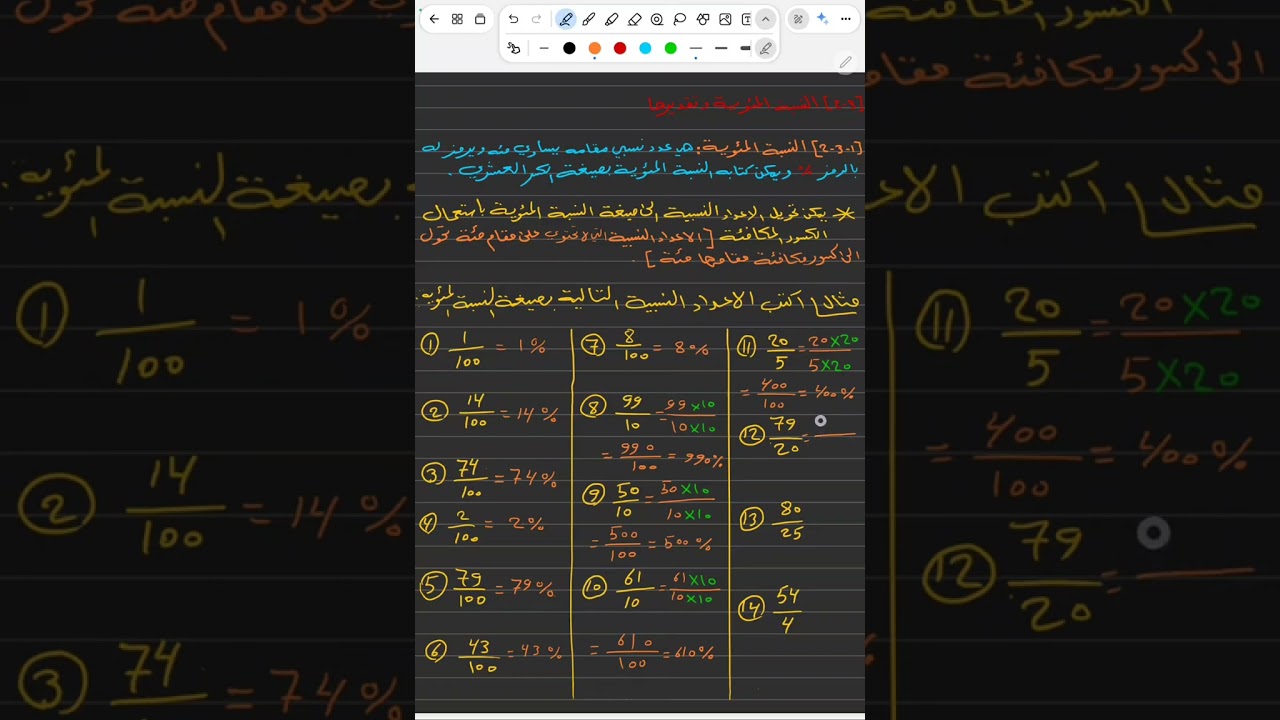 [٢-٣] النسبة المئوية وتقديرها
[2-3-1] النسبة المئوية: هي عدد نسبي مقامه يساوي مئه ويرمز له
بالرمز % ويمكن كتابه النسبة المئوية بصيغة الكسر العشري.
* يمكن تحويل الاعداد النسبية الى صيغة النسبة المئوية باستعمال
الكسور المكافئة [الاعداد النسبية التي لا تحتوي على مقام مئة تحول
الى كسور مكافئة مقامها مئة].
مثال/ اكتب الاعداد النسبية التالية بصيغة النسبة المئويه.
① 1/100 = 1%
② 14/100 = 14%
③ 74/100 = 74%
④ 2/100 = 2%
⑤ 79/100 = 79%
⑥ 43/100 = 43%
⑦ 8/100 = 80%
⑧ 99/10 = 99×10/10×10
= 990/100 = 990%
⑨ 50/10 = 50×10/10×10
= 500/100 = 500%
⑩ 61/10 = 61×10/10×10
= 610/100 = 610%
⑪ 20/5 = 20×20/5×20
= 400/100 = 400%
⑫ 79/20 =
⑬ 80/25
⑭ 54/4